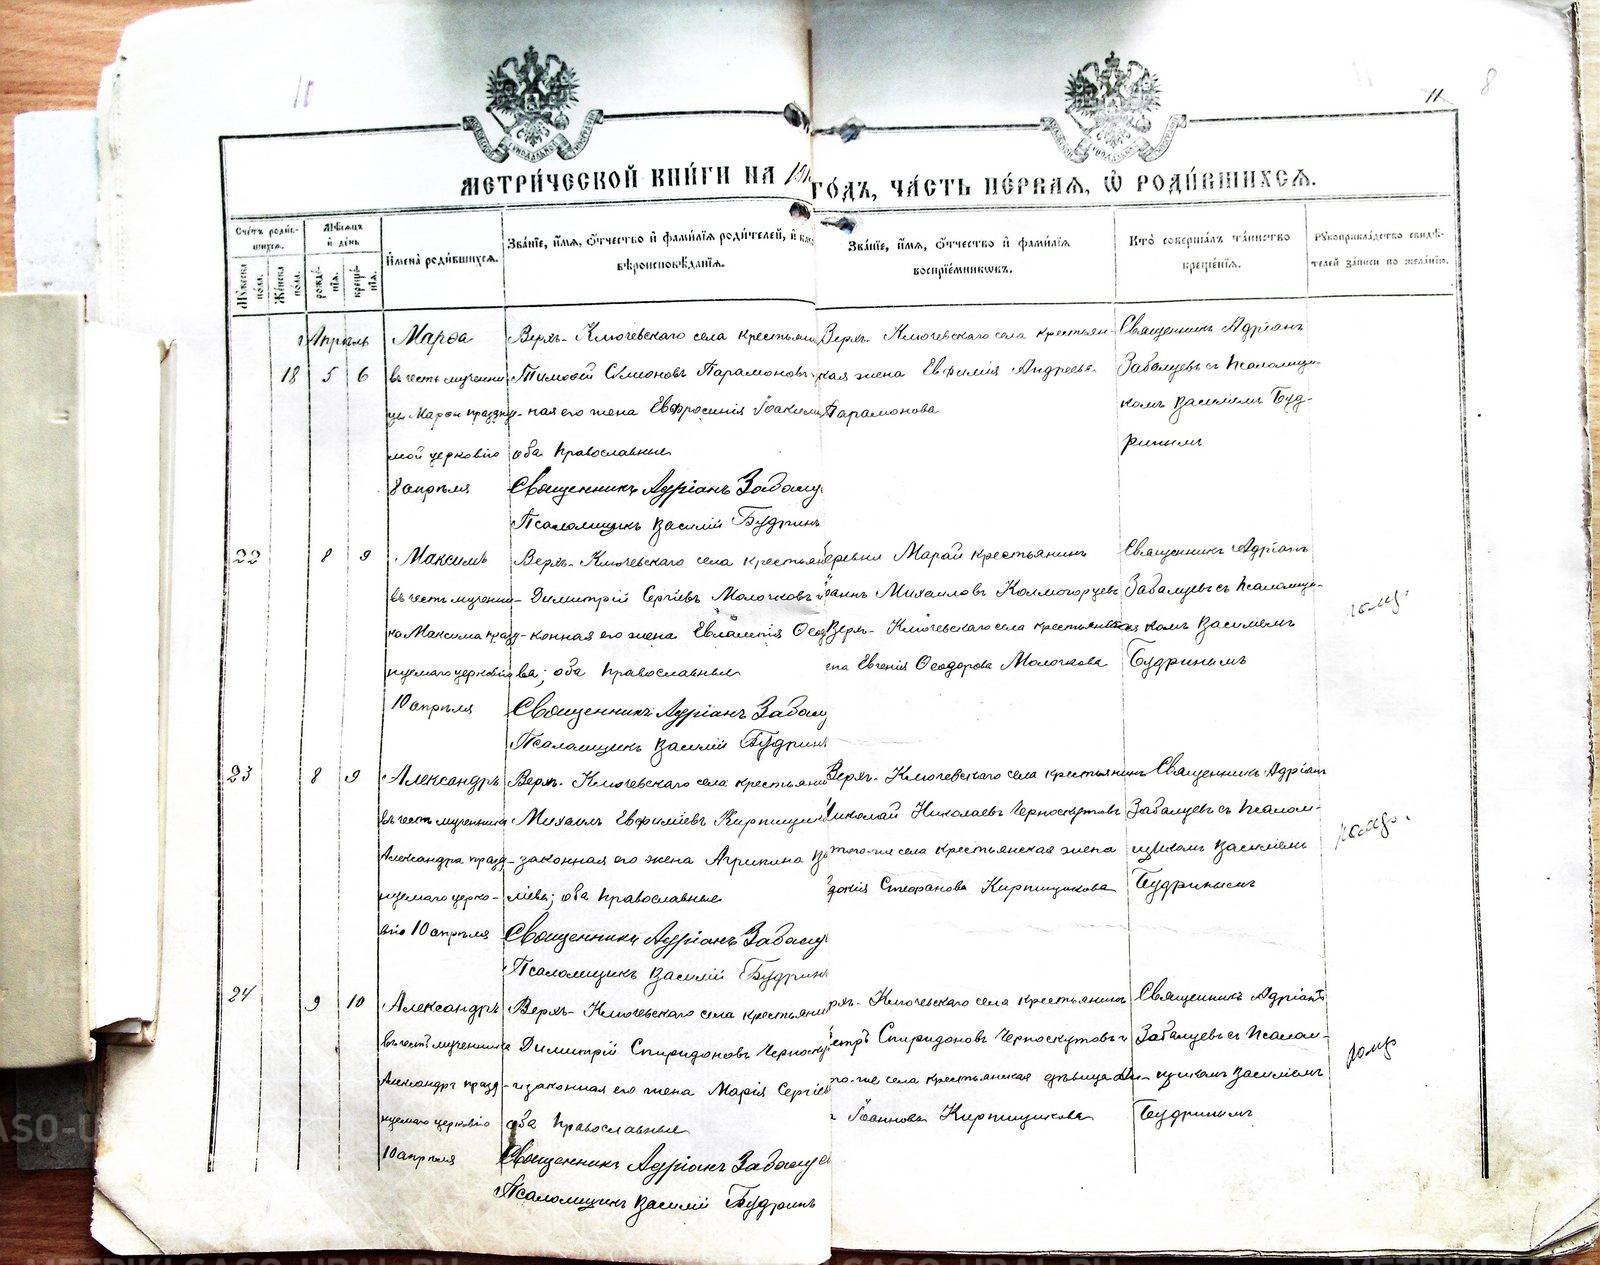 11
8
МЕТРИ́ЧЕСКОЙ КНИ́ГИ НА 191 ГО́ДЪ, ЧА́СТЬ ПЕ́РВАЯ, Ѡ РОДИ́ВШИХСЯ.
Сче́тъ роди́вшихся.
Мѣ́сяцъ и де́нь
Мꙋ́жеска по́ла.
Же́нска по́ла.
рожде́нїя.
креще́нїя.
И҆мена̀ роди́вшихся.
Зва́нїе, и҆́мя, ѻ҆́тчество и҆ фами́лїя роди́телей, и҆
вѣроисповѣ́данїя.
Зва́нїе, и҆́мя, ѻ҆́тчество и҆ фами́лїя
воспрїе́мникѡвъ.
Кто̀ соверша́лъ та́инство
креще́нїя.
Рꙋкоприкла́дство свидѣ́-
телей за́писи по жела́нїю.
Апрѣль
18 5 6
Марѳа
въ честь мучени-
цы Марѳы праздну-
мой церковію
8 апрѣля
Верхъ-Ключевскаго села крестьяни
Тимоѳей Симоновъ Парамоновъ
ная его жена Евфросинія Іоаким
оба православные
Священникъ Адріанъ Забалу
Псаломщикъ Василій Будринъ
Верхъ-Ключевскаго села крестьян-
кая жена Евфимія Андреева
Парамонова
Священникъ Адріанъ
Забалуевъ съ псаломщи-
комъ Василіемъ Буд-
ринымъ
22 8 9
Максимъ
въ честь мучени-
ка Максима празд-
нуемаго церковію
10 апрѣля
Верхъ-Ключевскаго села крестьян
Димитрій Сергіевъ Молочковъ и
конная его жена Евлампія Ѳеод
ва; оба православные
Священникъ Адріанъ Забалу
Псаломщикъ Василій Будринъ
деревни Марай крестьянинъ
Іоаннъ Михаиловъ Колмогорцевъ
Верхъ-Ключевскаго села крестьянская
Евгенія Ѳеодорова Молочкова
Священникъ Адріанъ
Забалуевъ съ псаломщи-
комъ Василіемъ
Будринымъ
23 8 9
Александръ
въ честь мученика
Александра празд-
нуемаго церко-
вію 10 апрѣля
Верхъ-Ключевскаго села крестьяни
Михаилъ Евфиміевъ Кирпищик
законная его жена Агрипина Ва
ліева; оба православные
Священникъ Адріанъ Забалу
Псаломщикъ Василій Будринъ
Верхъ-Ключевскаго села крестьянинъ
Николай Николаевъ Черноскутовъ
того-же села крестьянская жена
Стефанова Кирпищикова
Священникъ Адріанъ
Забалуевъ съ псалом-
щикомъ Василіемъ
Будринымъ
24 9 10
Александръ
въ честь мученика
Александра празд-
нуемаго церковію
10 апрѣля
Верхъ-Ключевскаго села крестьяни
Димитрій Спиридоновъ Черноску
и законная его жена Марія Сергіев
оба православные
Священникъ Адріанъ Забалуе
Псаломщикъ Василій Будринъ
рхъ-Ключевскаго села крестьянинъ
етръ Спиридоновъ Черноскутовъ и
го-же села крестьянская дѣвица
Іоаннова Кирпищикова
Священникъ Адріанъ
Забалуевъ съ псалом-
щикомъ Василіемъ
Будринымъ